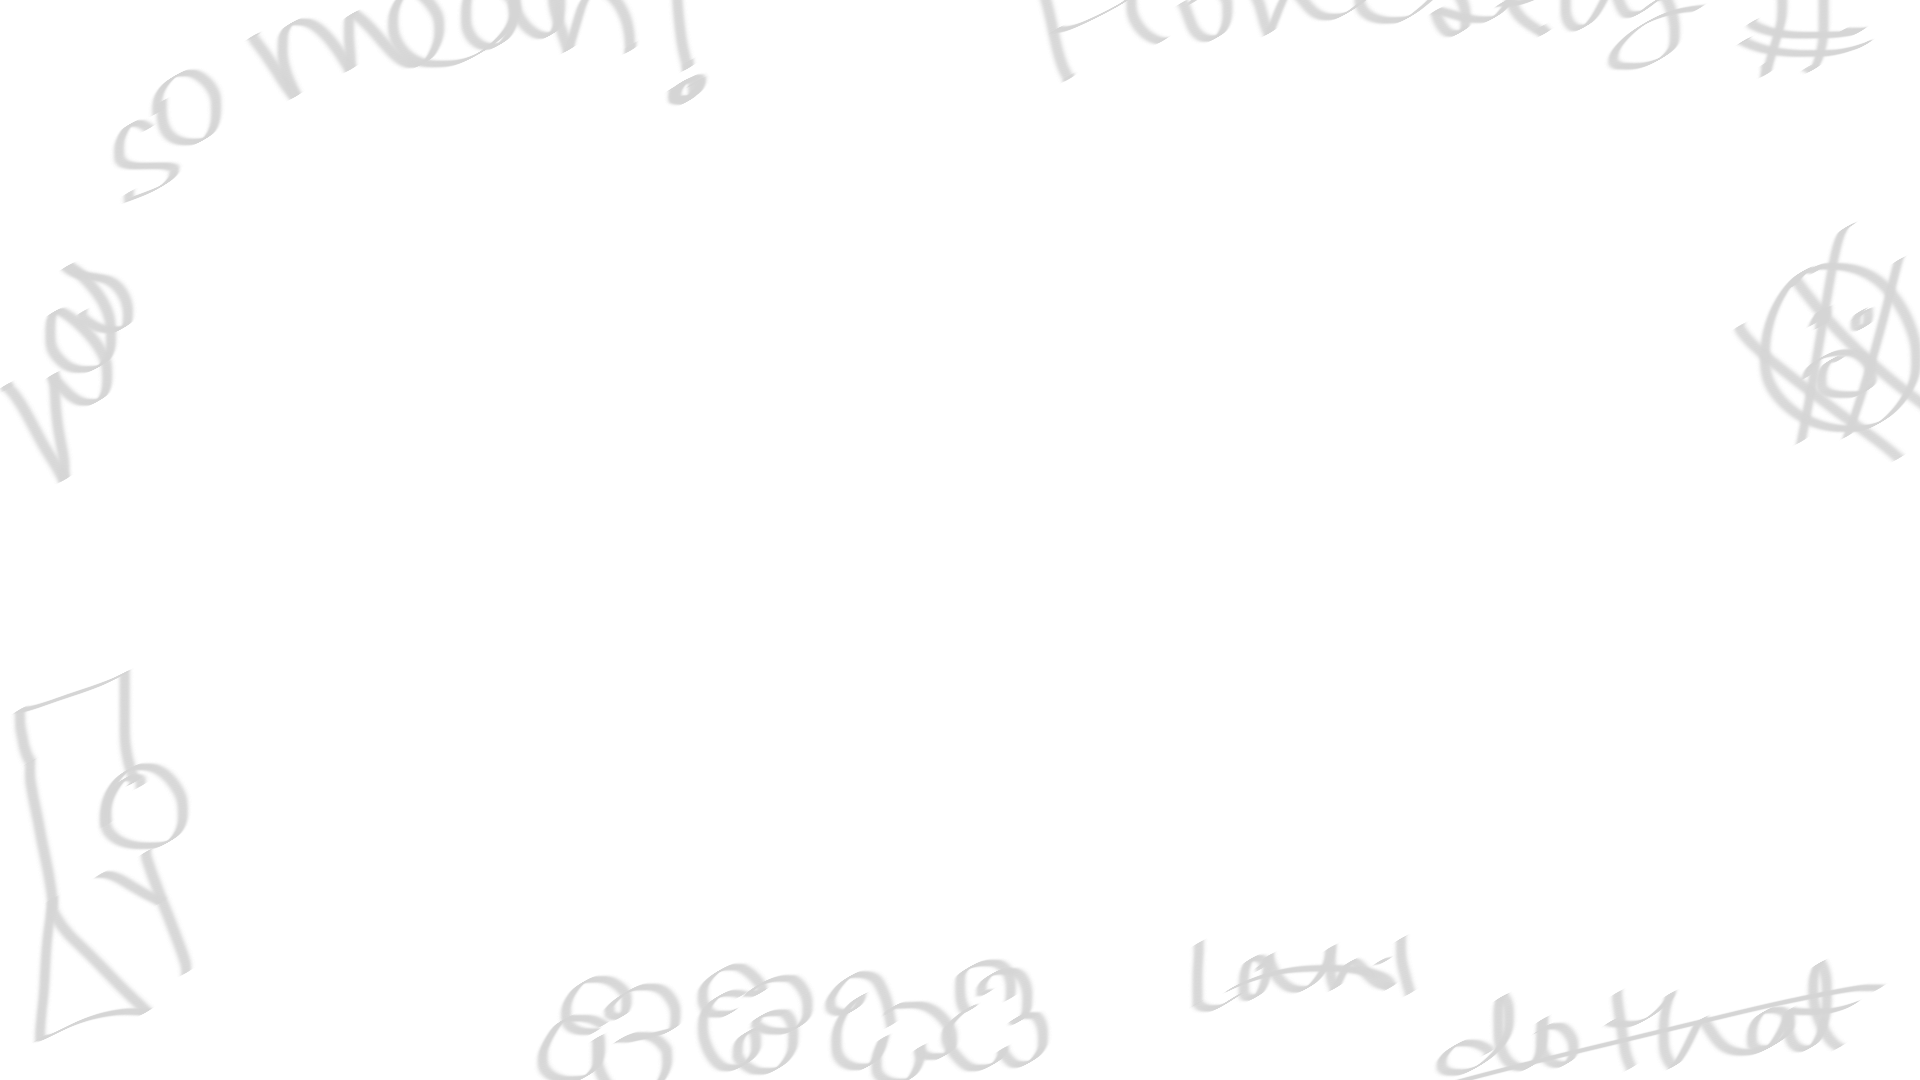 so mean!
Honestly #
was
do that